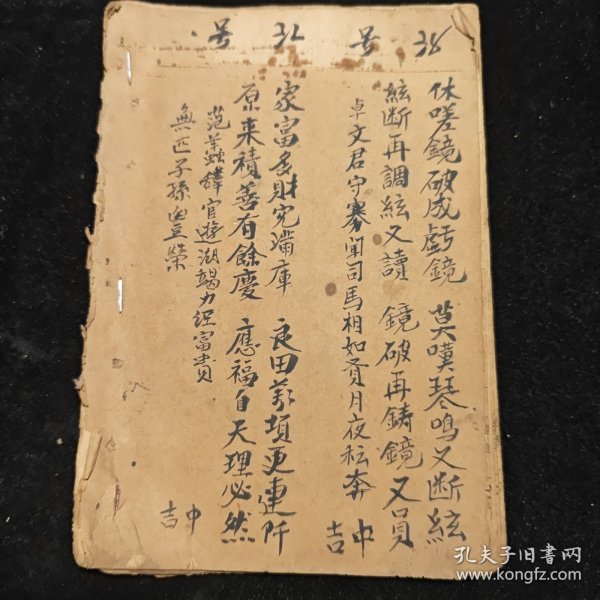 38 号
休嗟鏡破成虧鏡 莫嘆琴鳴又断絃
絃断再調絃又讀 鏡破再鋳鏡又員
卓文君守寡闻司馬相如 月夜 奔
中吉
32 号
家富多財宛滿庫 良田萬頃更連阡
原来積善有餘慶 應福自天理必然
范蠡辞官遊湖竭力经富貴
無匹子孫 榮
中吉
孔夫子旧书网
www.kongfz.com